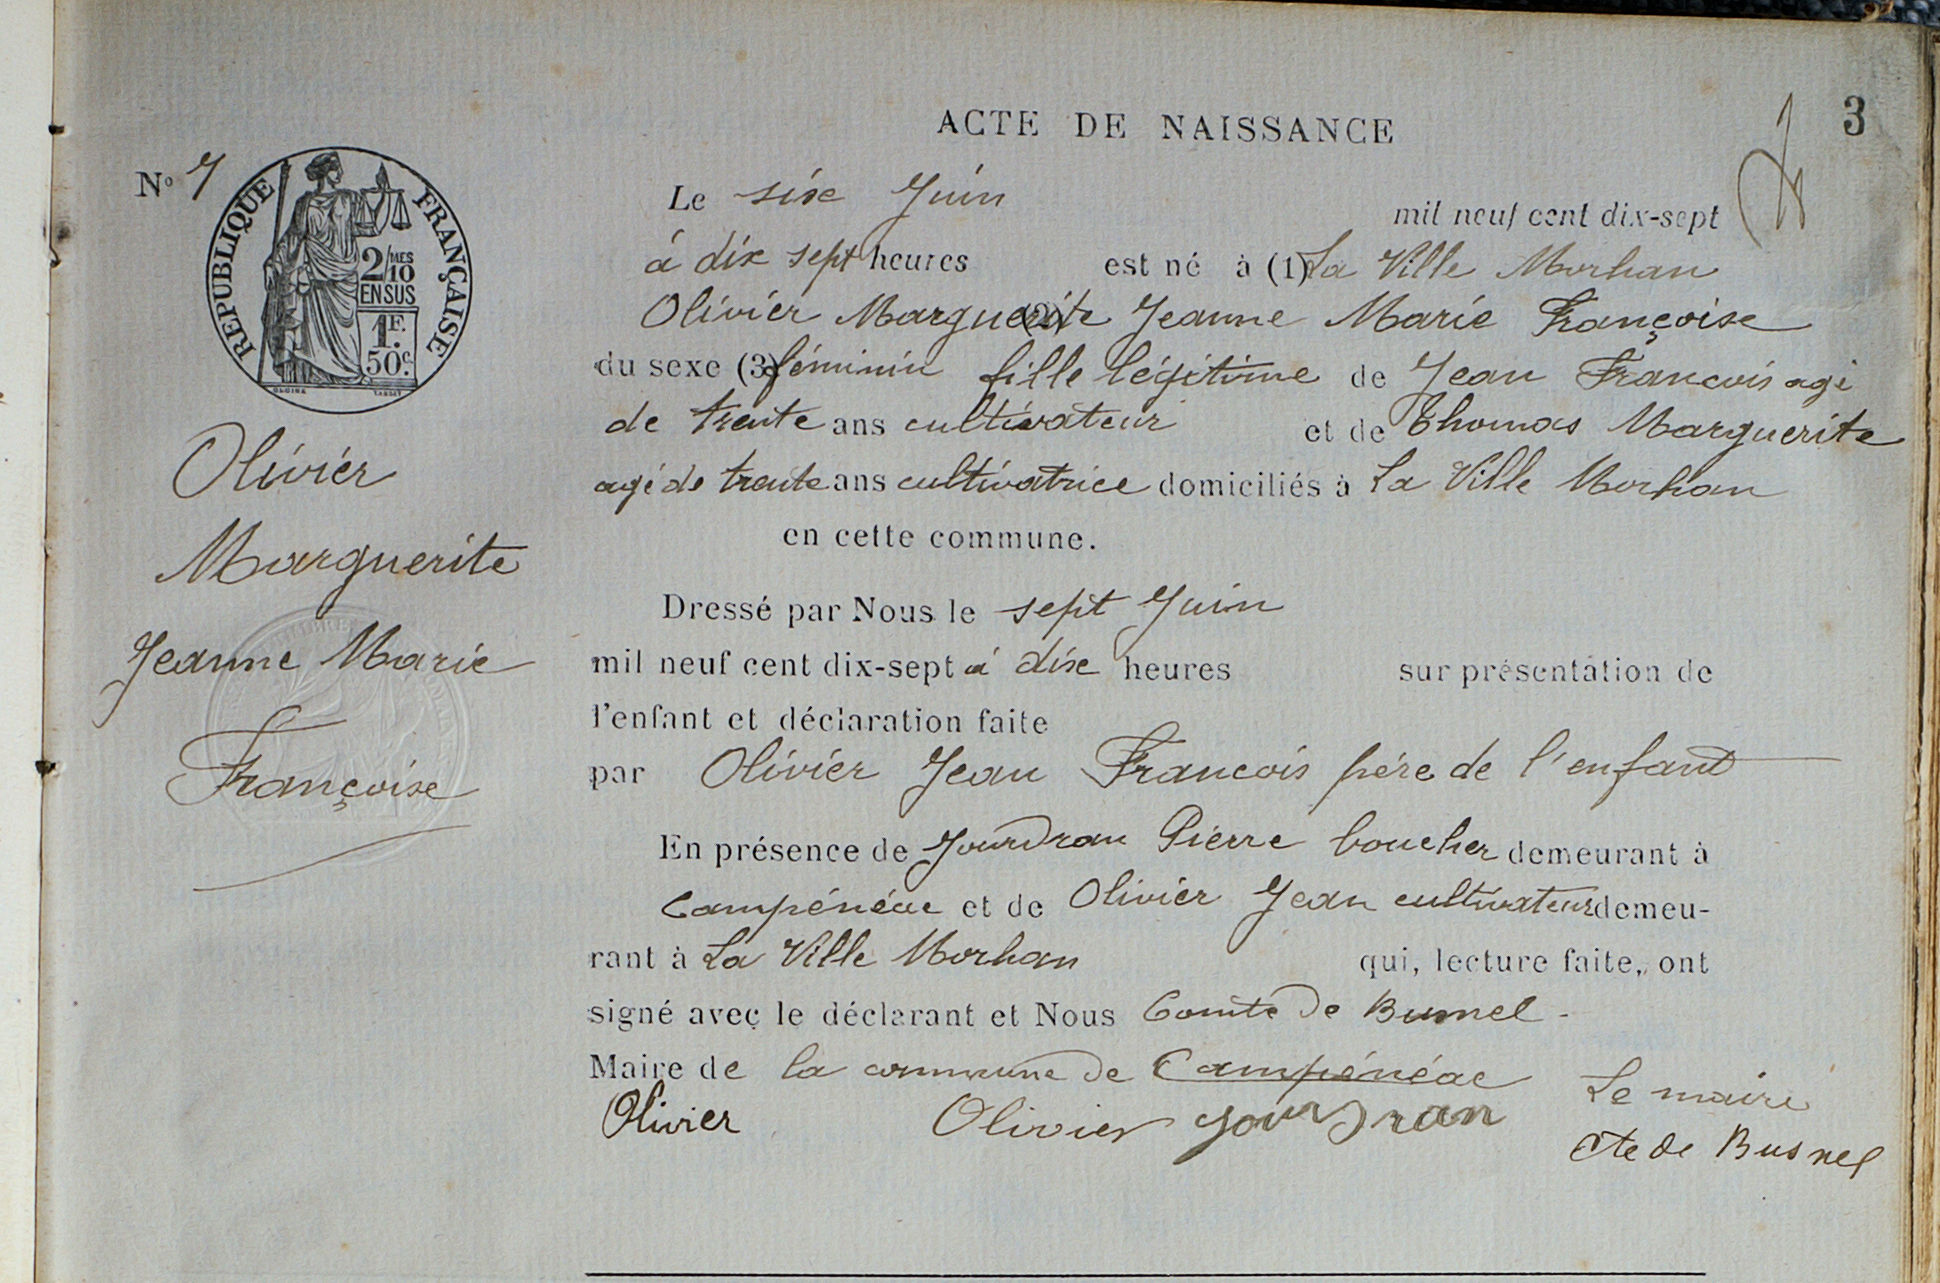 3
ACTE DE NAISSANCE
N° 7
REPUBLIQUE FRANÇAISE
2/MES
10
EN SUS
1F.
50c.
Olivier
Marguerite
Jeanne Marie
Françoise
Le six Juin mil neuf cent dix-sept
à dix sept heures est né à (1) La Ville Morhan
Olivier Marguerite (2) Jeanne Marie Françoise
du sexe (3) féminin fille légitime de Jean Francois agé
de trente ans cultivateur et de Thomas Marguerite
agé de trente ans cultivatrice domiciliés à La Ville Morhan
en cette commune.
Dressé par Nous le sept Juin
mil neuf cent dix-sept à dix heures sur présentation de
l'enfant et déclaration faite
par Olivier Jean Francois père de l'enfant
En présence de Jourdran Pierre boucher demeurant à
Campénéac et de Olivier Jean cultivateur demeu-
rant à La Ville Morhan qui, lecture faite, ont
signé avec le déclarant et Nous Comte de Busnel -
Maire de la commune de Campénéac
Le maire
Olivier Olivier Jourdran
Cte de Busnel